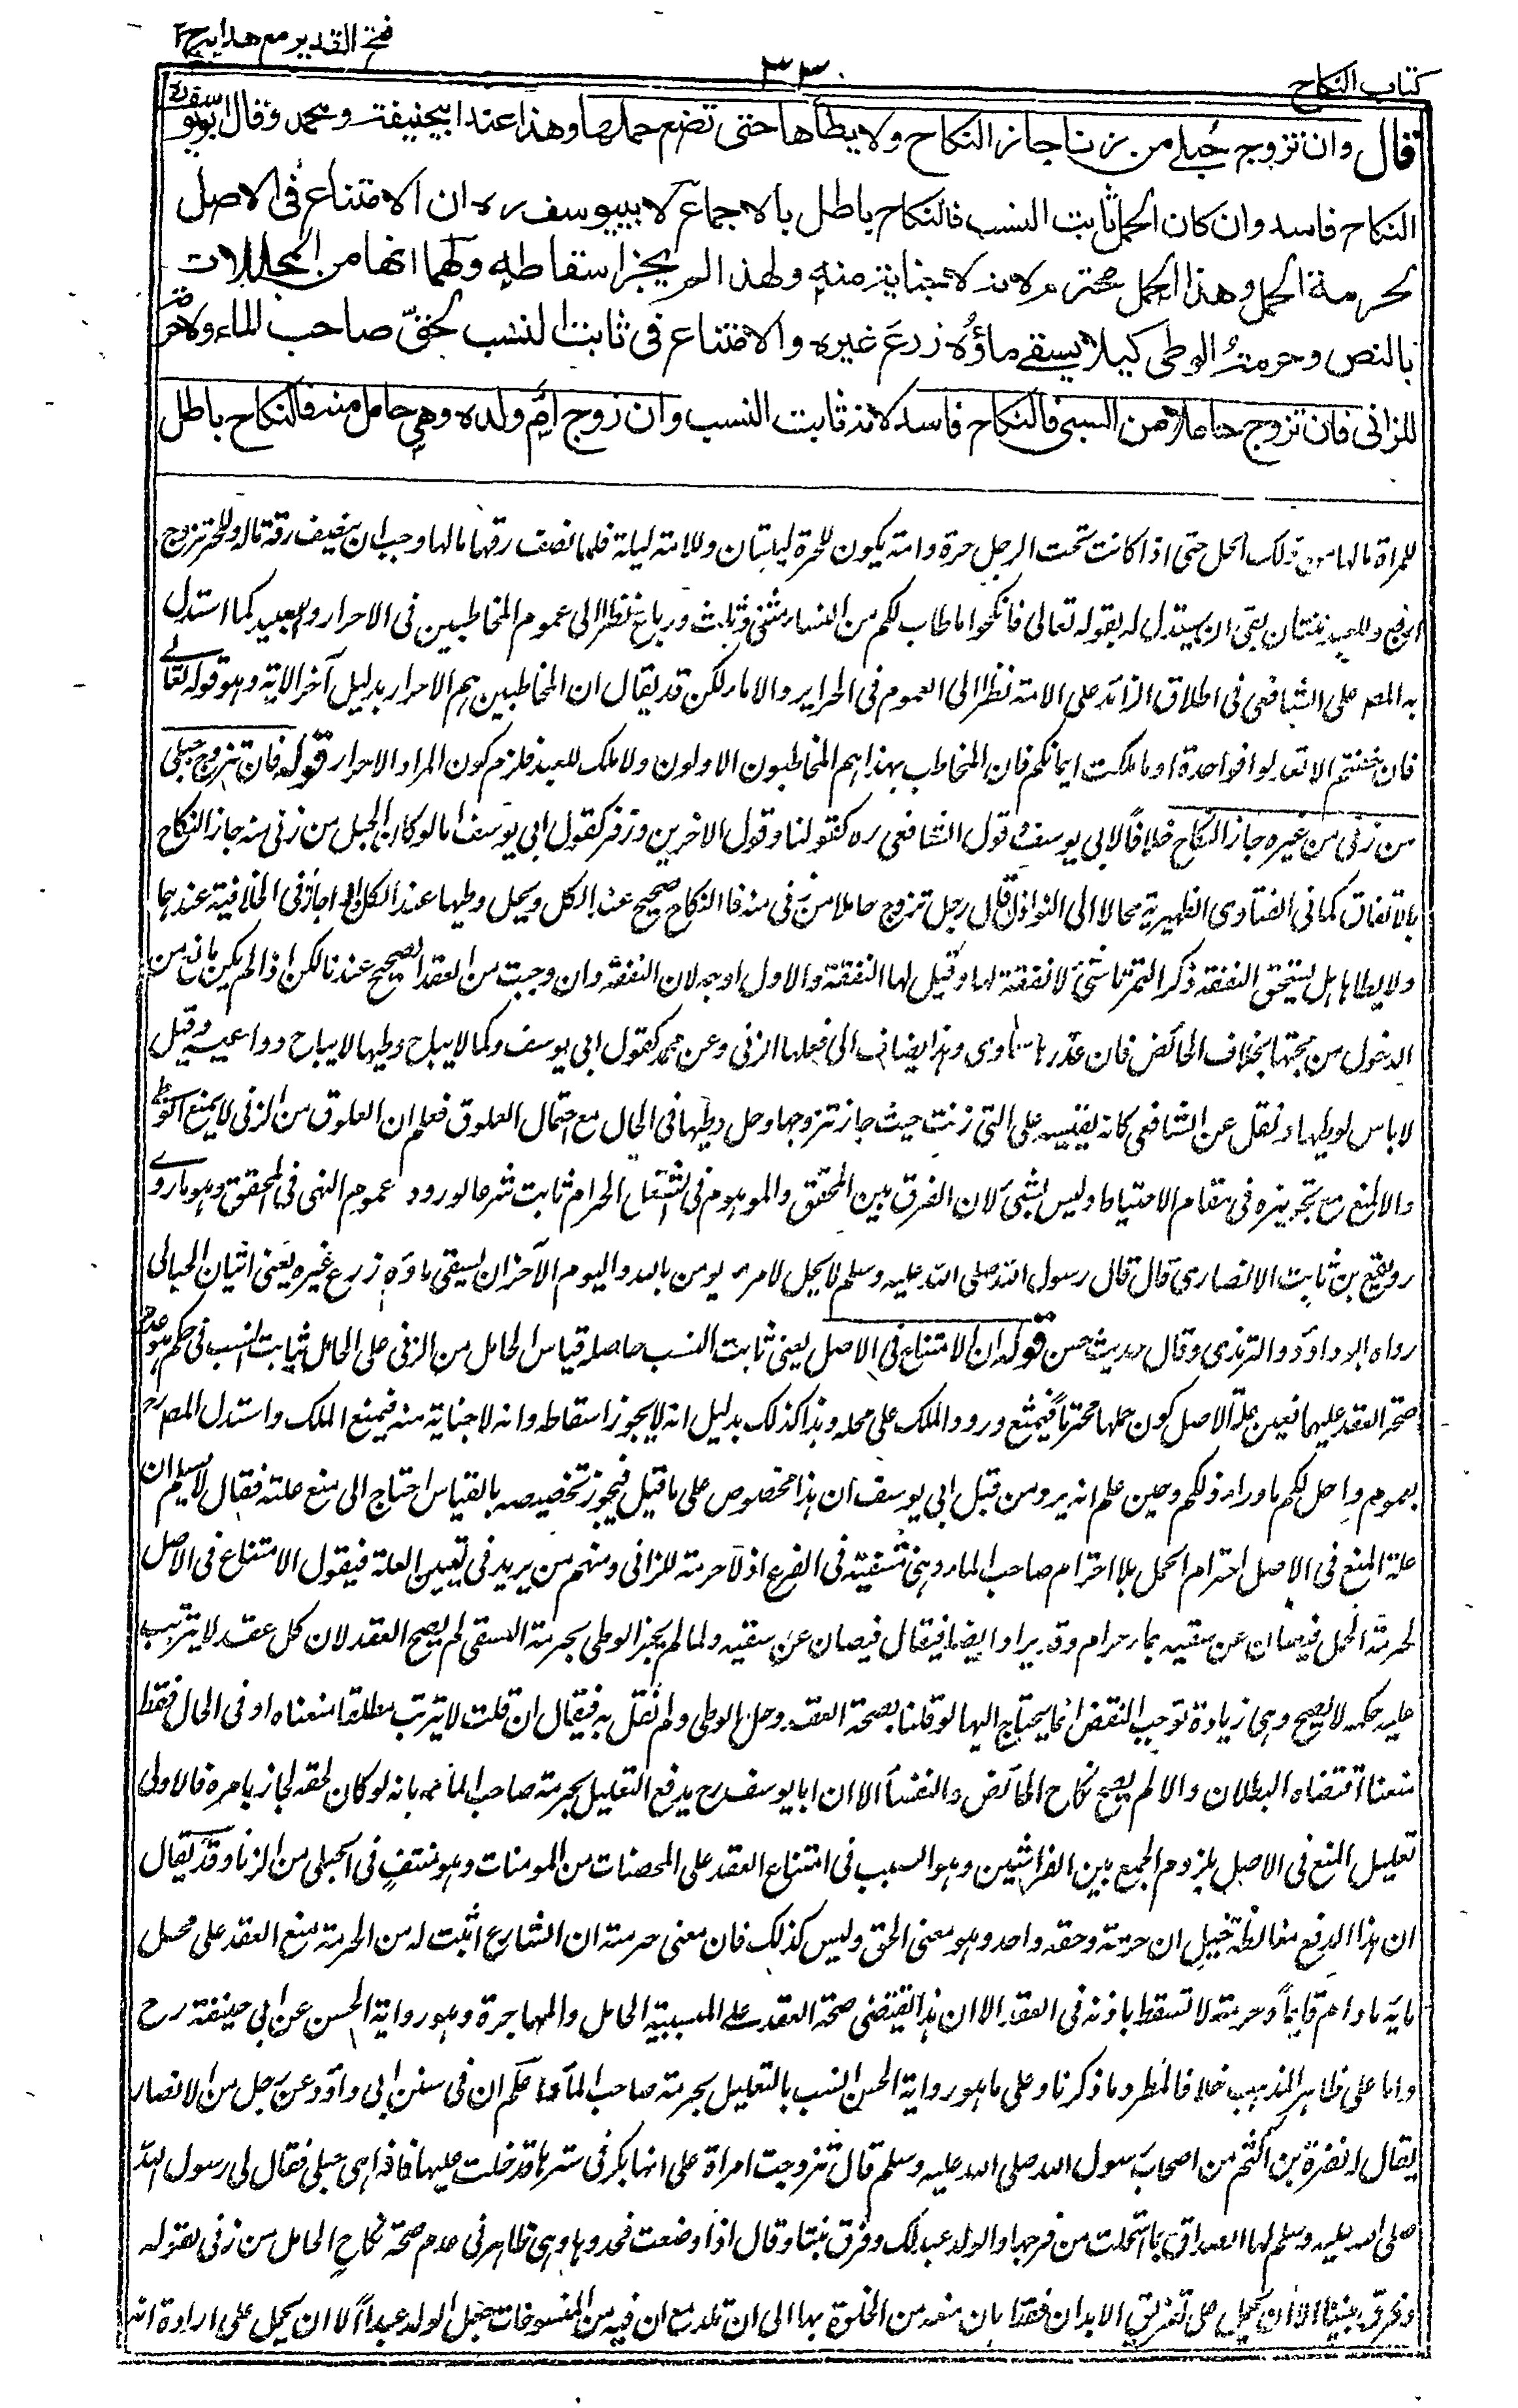 فتح القدير مع هدايه ج ٢
٣٣٠
كتاب النكاح
قال وان تزوج حبلى من زنا جاز النكاح ولا يطأها حتى تضع حملها وهذا عند ابيحنيفة ومحمد وقال ابويوسف رح
النكاح فاسد وان كان الحمل ثابت النسب فالنكاح باطل بالاجماع لابييوسف ره ان الامتناع فى الاصل
لحرمة الحمل وهذا الحمل محترم لانه لا جناية منه ولهذا لم يجز اسقاطه ولهما انها من المحللات
بالنص وحرمة الوطى كيلا يسقے ماؤه زرع غيره والامتناع فى ثابت النسب لحق صاحب الماء ولا حرمة
للزانى فان تزوج حاملا من السبى فالنكاح فاسد لانه ثابت النسب وان زوج ام ولده وهى حامل منه فالنكاح باطل
للمرأة مالها من ذلك الحل حتى اذا كانت تحت الرجل حرة وامة يكون للحرة ليلتان وللامة ليلة فلما نصف رقها مالها وجب ان ينصف رقه ماله وللحر تزوج
اربع وللعبد ثنتان بقى ان يستدل له بقوله تعالى فانكحوا ما طاب لكم من النساء مثنى وثلث ورباع نظرا الى عموم المخاطبين فى الاحرار والعبيد كما استدل
به المصـ على الشافعى فى اطلاق الزائد على الامة نظرا الى العموم فى الحراير والاماء لكن قد يقال ان المخاطبين هم الاحرار بدليل آخر الاية وهو قوله تعالے
فان خفتم الا تعدلوا فواحدة او ما ملكت ايمانكم فان المخاطب بهذا هم المخاطبون الاولون ولا ملك للعبد فلزم كون المراد الاحرار قوله فان تزوج حبلى
من زنى من غيره جاز النكاح خلافا لابى يوسف وقول الشافعى ره كقولنا وقول الاخرين وزفر كقول ابى يوسف اما لو كان الحبل من زنى منه جاز النكاح
بالاتفاق كما فى الفتاوى الظهيرية محالا الى النوازل قال رجل تزوج حاملا من زنى منه فالنكاح صحيح عند الكل ويحل وطيها عند الكل واذا جاز فى الخلافية عندهما
ولا يطاها هل يستحق النفقة ذكر التمرتاشى لا نفقة لها وقيل لها النفقة والاول اوجه لان النفقة وان وجبت من العقد الصحيح عندنا لكن اذا لم يكن مانع من
الدخول من جهتها بخلاف الحائض فان عذرها سماوى وهذا يضاف الى فعلها الزنى وعن محمد كقول ابى يوسف وكما لا يباح وطيها لا يباح دواعيه وقيل
لا باس لوطيها ونقل عن الشافعى كانه يقيسه على التى زنت حيث جاز تزوجها وحل وطيها فى الحال مع احتمال العلوق فعلم ان العلوق من الزنى لا يمنع الوطے
والا لمنع مع تجويزه فى مقام الاحتياط وليس بشئ لان الفرق بين المحقق والموهوم فى الشغل الحرام ثابت شرعا لورود عموم النهى فى المحقق وهو ما روے
رويفع بن ثابت الانصارى قال قال رسول الله صلى الله عليه وسلم لا يحل لامرء يومن بالله واليوم الآخر ان يسقى ماؤه زرع غيره يعنى اتيان الحبالى
رواه ابو داؤد والترمذى وقال حديث حسن قوله ان الامتناع فى الاصل يعنى ثابت النسب حاصله قياس الحامل من الزنى على الحامل ثابت النسب فى حكم هو عدم
صحة العقد عليهما فعين علة الاصل كون حملها محترما فيمتنع ورود الملك على محله وهذا كذلك بدليل انه لا يجوز اسقاطه وانه لا جناية منه فيمنع الملك واستدل المصـ ره
بعموم واحل لكم ما وراء ذلكم وحين علم انه يرد من قبل ابى يوسف ان هذا مخصوص على ما قيل فيجوز تخصيصه بالقياس احتاج الى منع علته فقال لا نسلم ان
علة المنع فى الاصل احترام الحمل بلا احترام صاحب الماء وهى منتفية فى الفرع اذ لا حرمة للزانى ومنهم من يزيد فى تعيين العلة فيقول الامتناع فى الاصل
لحرمة الحمل فيصان عن سقيه بماء حرام وقد يزاد ايضا فيقال فيصان عن سقيه ولما لم يجز الوطى لحرمة السقى لم يصح العقد لان كل عقد لا يترتب
عليه حكمه لا يصح وهى زيادة توجب النقض انما يحتاج اليها لو قلنا بصحة العقد وحل الوطى ولم نقل به فيقال ان قلت لا يترتب مطلقا منعناه او فى الحال فقط
منعنا اقتضاه البطلان والا لم يصح نكاح الحائض والنفسأ الا ان ابا يوسف رح يدفع التعليل بحرمة صاحب الماء بانه لو كان لحقه لجاز بامره فالاولى
تعليل المنع فى الاصل بلزوم الجمع بين الفراشين وهو السبب فى امتناع العقد على المحصنات من المومنات وهو منتف فى الحبلى من الزنا وقد يقال
ان هذا الدفع مغالطة تخيل ان حرمته وحقه واحد وهو معنى الحق وليس كذلك فان معنى حرمته ان الشارع اثبت له من الحرمة منع العقد على محل
مايه ما دام قايما وحرمته لا تسقط باذنه فى العقد الا ان هذا يقتضى صحة العقد علے المسبية الحامل والمهاجرة وهو رواية الحسن عن ابى حنيفة رح
واما على ظاهر المذهب خلافا لمطرد ما ذكرنا وعلى ما هو رواية الحسن النسب بالتعليل بحرمة صاحب المأ واعلم ان فى سنن ابى داؤد عن رجل من الانصار
يقال له نضرة بن اكثم من اصحاب رسول الله صلى الله عليه وسلم قال تزوجت امراة على انها بكر فى سترها فدخلت عليها فاذا هى حبلى فقال لى رسول الله
صلى الله عليه وسلم لها الصداق بما استحللت من فرجها والولد عبد لك وفرق بيننا وقال اذا وضعت فحدوها وهى ظاهر فى عدم صحة نكاح الحامل من زنى لقوله
وفرق بيننا الا ان يحمل على تفريق الابدان فقط بان منعه من الخلوة بها الى ان تلد مع ان فيه من المنسوخات جعل الولد عبدا الا ان يحمل على ارادة انه